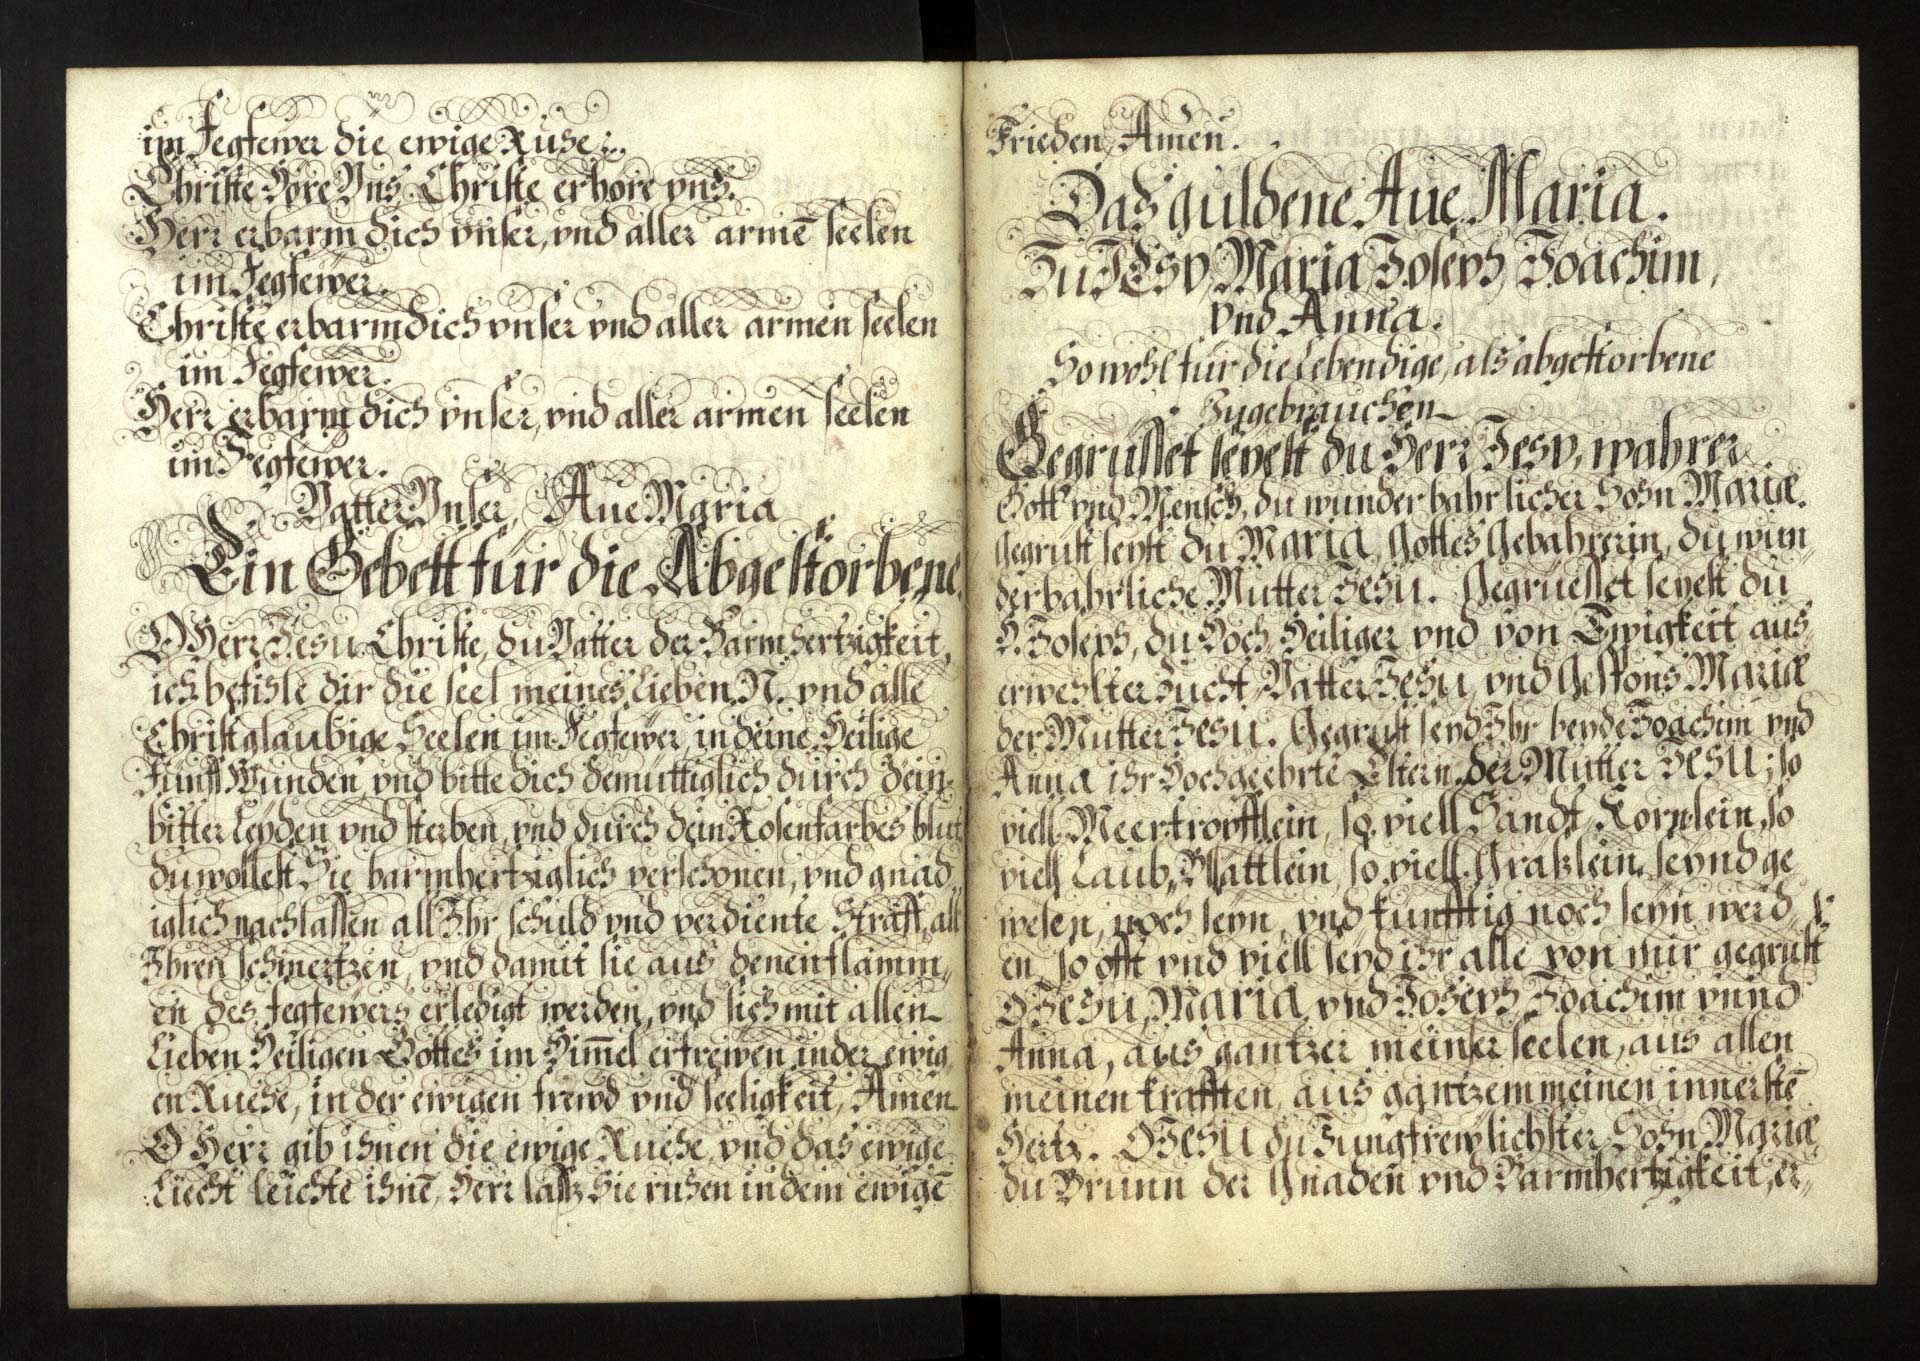 im Fegfewer die ewige Ruhe.
Christe höre Vns Christe erhöre vns.
Herr erbarm dich vnser, vnd aller armē seelen
im Fegfewer.
Christe erbarm dich vnser vnd aller armen seelen
im Fegfewer.
Herr erbarm dich vnser, vnd aller armen seelen
im Fegfewer.
Vatter Vnser, Aue Maria
Ein Gebett für die Abgestorbene.
O Herr Jesu Christe, du Vatter der Barmhertzigkeit,
ich befihle dir die seel meines lieben N. vnd alle
Christglaubige Seelen im Fegfewer, in deine Heilige
Fünff Wunden, vnd bitte dich demüttiglich durch dein
bitter leyden vnd sterben, vnd durch dein Rosenfarbes blut
du wöllest Sie barmhertziglich verschonen, vnd gnäd„
iglich nachlassen all Ihr schuld vnd verdiente Straff, all
Ihren schmertzen, vnd damit sie aus denen flamm„
en des Fegfewers erledigt werden, vnd sich mit allen
lieben Heiligen Gottes im Him̄el erfrewen in der ewig
en Ruehe, in der ewigen frewd vnd seeligkeit, Amen
O Herr gib ihnen die ewige Ruehe, vnd das ewige
Liecht leüchte ihnē, Herr lass Sie ruhen in dem ewigē
Frieden, Amen.
Das guldene Aue Maria.
Zu JEsv, Maria, Joseph, Joachim,
vnd Anna.
So wohl für die lebendige, als abgestorbene
Zugebrauchen
Gegrüsset seyest du Herr Jesv, wahrer
Gott vnd Mensch, du wunderbahrlicher Sohn Mariæ.
Gegrüst seyst du Maria, Gottes Gebährerin, du wun„
derbahrliche Mutter Jesu. Gegrüesset seyest du
H. Joseph, du Hoch Heiliger vnd von Ewigkeit aus
erwehlter Zucht Vatter Jesu, vnd Gespons Mariæ
der Mutter Jesu. Gegrüst seyd Ihr beyde Joachim vnd
Anna ihr Hochgeehrte Eltern der Mutter Jesu; so
viell Meertröpfflein, so viell Sandt Körnlein, so
viell Laub„Blättlein, so viell Gräßlein, seynd ge
wesen, noch seyn, vnd künfftig noch seyn werd„
en, so offt vnd viell seyd ihr alle von mir gegrüst
O Jesu, Maria, vnd Joseph, Joachim vnnd
Anna, aus gantzer meinser seelen, aus allen
meinen kräfften, aus gantzem meinen innerstē
Hertz. O Jesu du Jungfrewlichster Sohn Mariæ
du Brunn der Gnaden vnd Barmhertzigkeit, er„